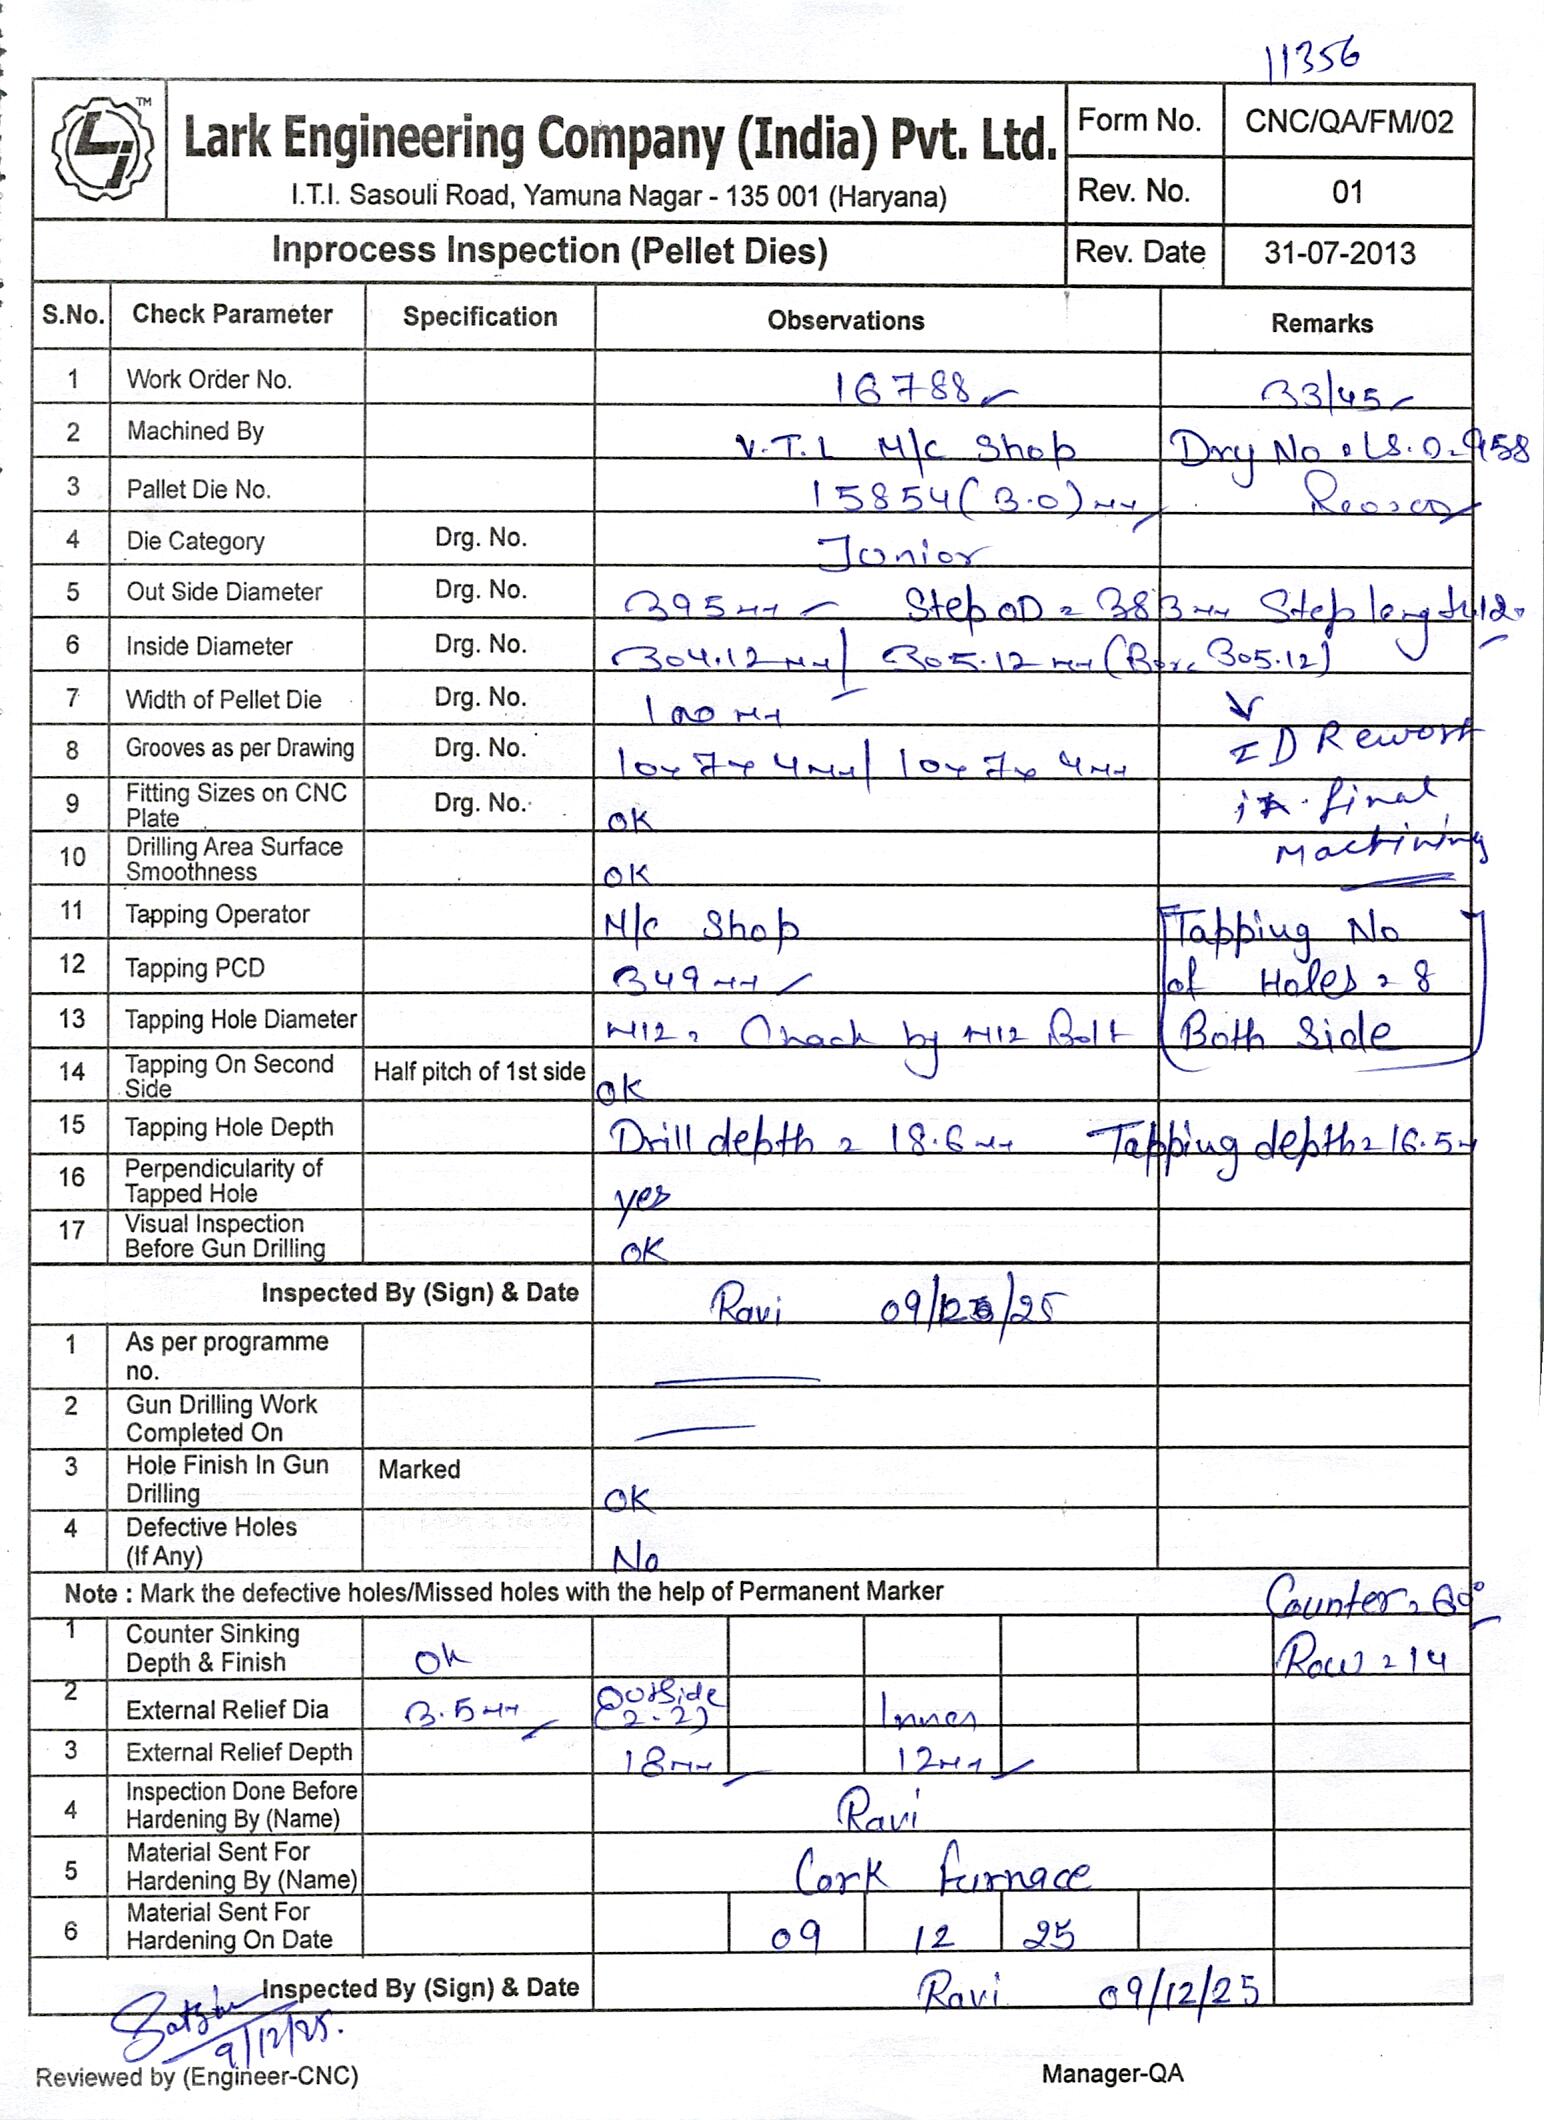 11356
LJ TM
Lark Engineering Company (India) Pvt. Ltd.
I.T.I. Sasouli Road, Yamuna Nagar - 135 001 (Haryana)
Form No. CNC/QA/FM/02
Rev. No. 01
Inprocess Inspection (Pellet Dies) Rev. Date 31-07-2013
S.No. Check Parameter Specification Observations Remarks
1 Work Order No. 16788 33/45
2 Machined By V.T.L M/C Shop Dry No
3 Pallet Die No. 15854 (3.0) mm
4 Die Category Drg. No. Junior
5 Out Side Diameter Drg. No. 395 mm Step OD = 383 mm Step length
6 Inside Diameter Drg. No. 304.12 mm / 305.12 mm (Bore 305.12)
7 Width of Pellet Die Drg. No. 100 mm ↓
8 Grooves as per Drawing Drg. No. 10x7x4 mm / 10x7x4 mm ID Rework
9 Fitting Sizes on CNC Plate Drg. No. OK in final
10 Drilling Area Surface Smoothness OK Machining
11 Tapping Operator M/C Shop Tapping No
12 Tapping PCD 349 mm of Holes = 8
13 Tapping Hole Diameter M12 = Chack by M12 Bolt Both Side
14 Tapping On Second Side Half pitch of 1st side OK
15 Tapping Hole Depth Drill depth = 18.6 mm Tapping depth = 16.5
16 Perpendicularity of Tapped Hole yes
17 Visual Inspection Before Gun Drilling OK
Inspected By (Sign) & Date Ravi
1 As per programme no.
2 Gun Drilling Work Completed On
3 Hole Finish In Gun Drilling Marked OK
4 Defective Holes (If Any) No
Note : Mark the defective holes/Missed holes with the help of Permanent Marker Counter = 60°
1 Counter Sinking Depth & Finish Ok Row = 14
2 External Relief Dia 3.5 mm Outside (2-2) Inner
3 External Relief Depth 18 mm 12 mm
4 Inspection Done Before Hardening By (Name) Ravi
5 Material Sent For Hardening By (Name) Furnace
6 Material Sent For Hardening On Date 09 12 25
Inspected By (Sign) & Date Ravi 09/12/25
9/12/25.
Reviewed by (Engineer-CNC) Manager-QA